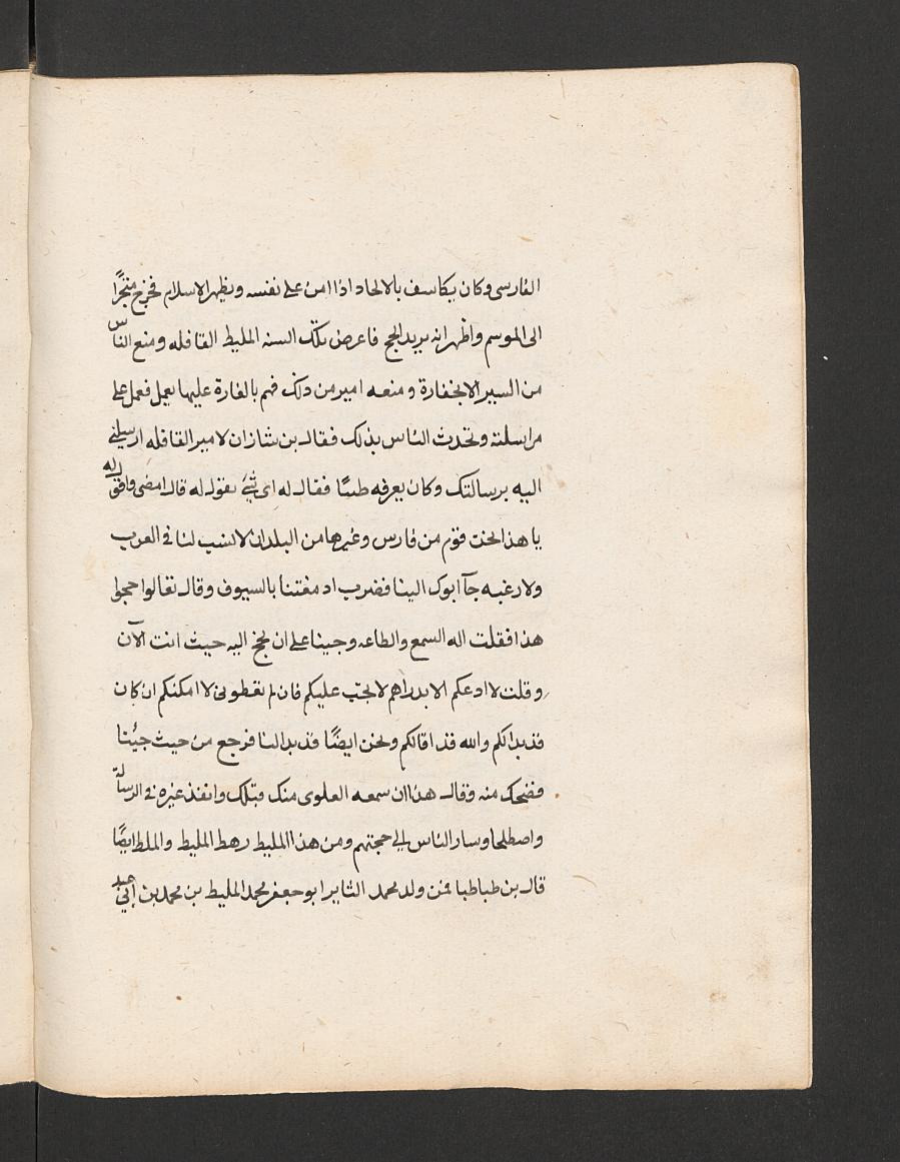 الفارسى وكان يكاسف بالالحاد اذا امن على نفسه ويظهر الاسلام فخرج متجرًا
الى الموسم واظهر انه يريد الحج فاعرض بتلك السنه المليط القافله ومنع الناس
من السير الا بخفارة ومنعه امير من ذلك فهم بالغارة عليها فعمل على
مراسلته وتحدث الناس بذلك فقال بن شازان لامير القافله ارسلنى
اليه برسالتك وكان يعرفه طيبًا فقال له اى شئ نقول له قال امضى واقول له
يا هذا نحن قوم من فارس وغيرها من البلدان لا نسب لنا فى العرب
ولا رغبه جآ ابوك الينا فضرب ادمغتنا بالسيوف وقال تعالوا حجوا
هذا فقلت له السمع والطاعه وجينا على ان نحج اليه حيث انت الآن
وقلت لا ادعكم الا بدراهم لا تجب عليكم فان لم تعطونى لا امكنكم ان كان
قد بدا لكم والله قد اقالكم ونحن ايضًا قد بدا لنا فرجع من حيث جيئنا
فضحك منه وقال هذا ان سمعه العلوى منك قتلك وانفذ غيره فى الرسالة
واصطلحا وسار الناس الى حجتهم ومن هذا المليط رهط المليط والملط ايضًا
قال بن طباطبا فمن ولد محمد الثاير ابو جعفر محمد المليط بن محمد بن